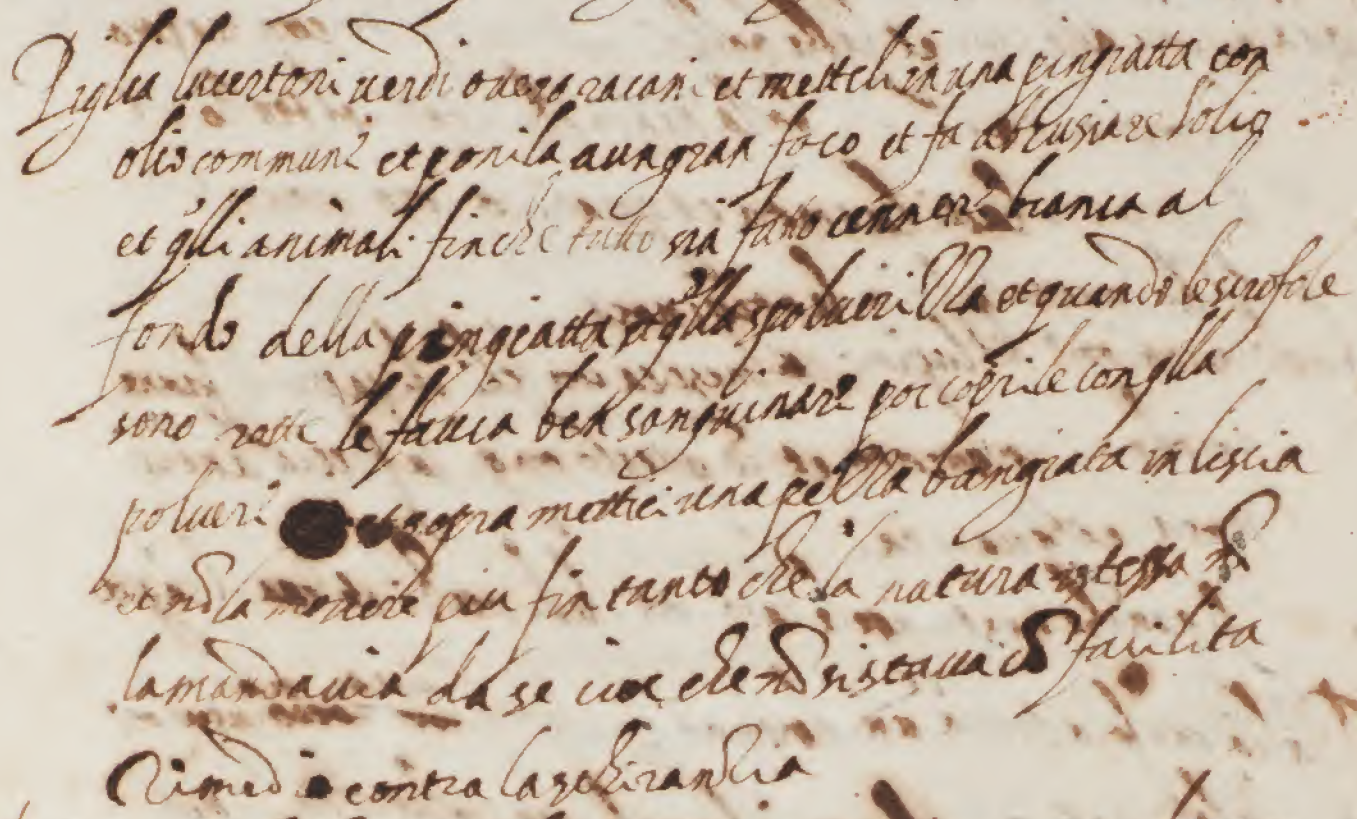 Piglia lucertoni verdi overo racani et metteli in una pingiatta con
olio commune et ponila a un gran foco et fa abbrusiare l'olio
et q̃lli animali finche tutto sia fatto cennere bianca al
fondo della pingiatta et q̃lla spolverizza et quando le scrofole
sono rotte le faccia ben sanguinare poi coprile con q̃lla
polvere et sopra mettici una pezza bangiata in liscia
et nõ la movere piu fin tanto che la natura istessa nõ
la manda via da se cioe che nõ si stacca cõ facilita
Rimedio contra la schirancia